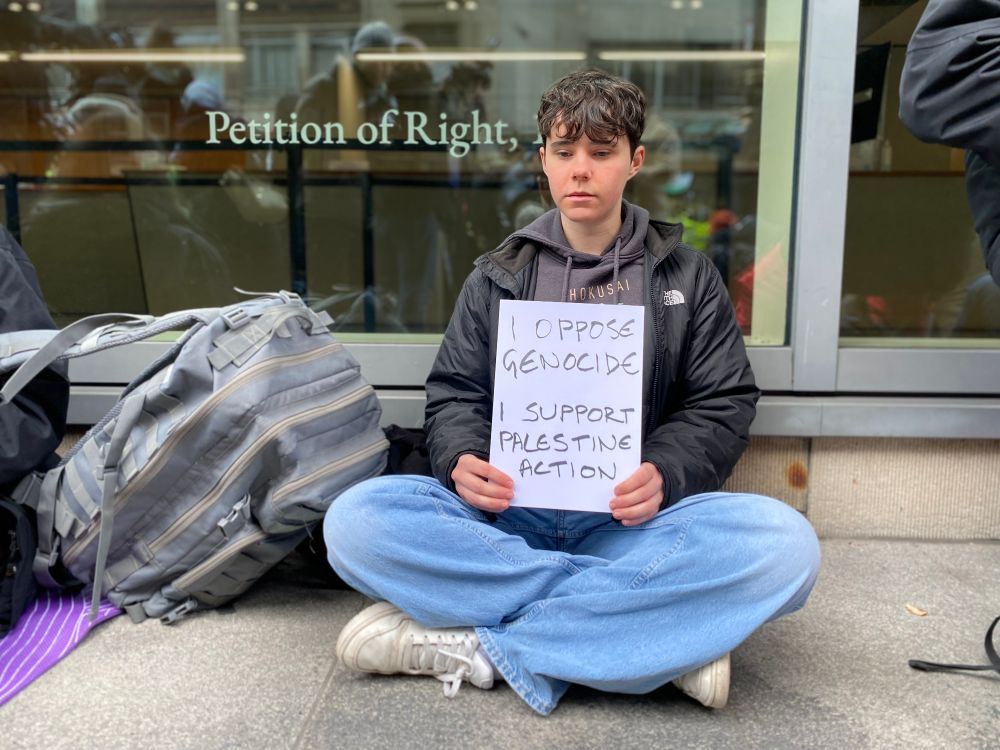 Petition of Right,
HOKUSAI
THE
NORTH
FACE
I OPPOSE
GENOCIDE
I SUPPORT
PALESTINE
ACTION